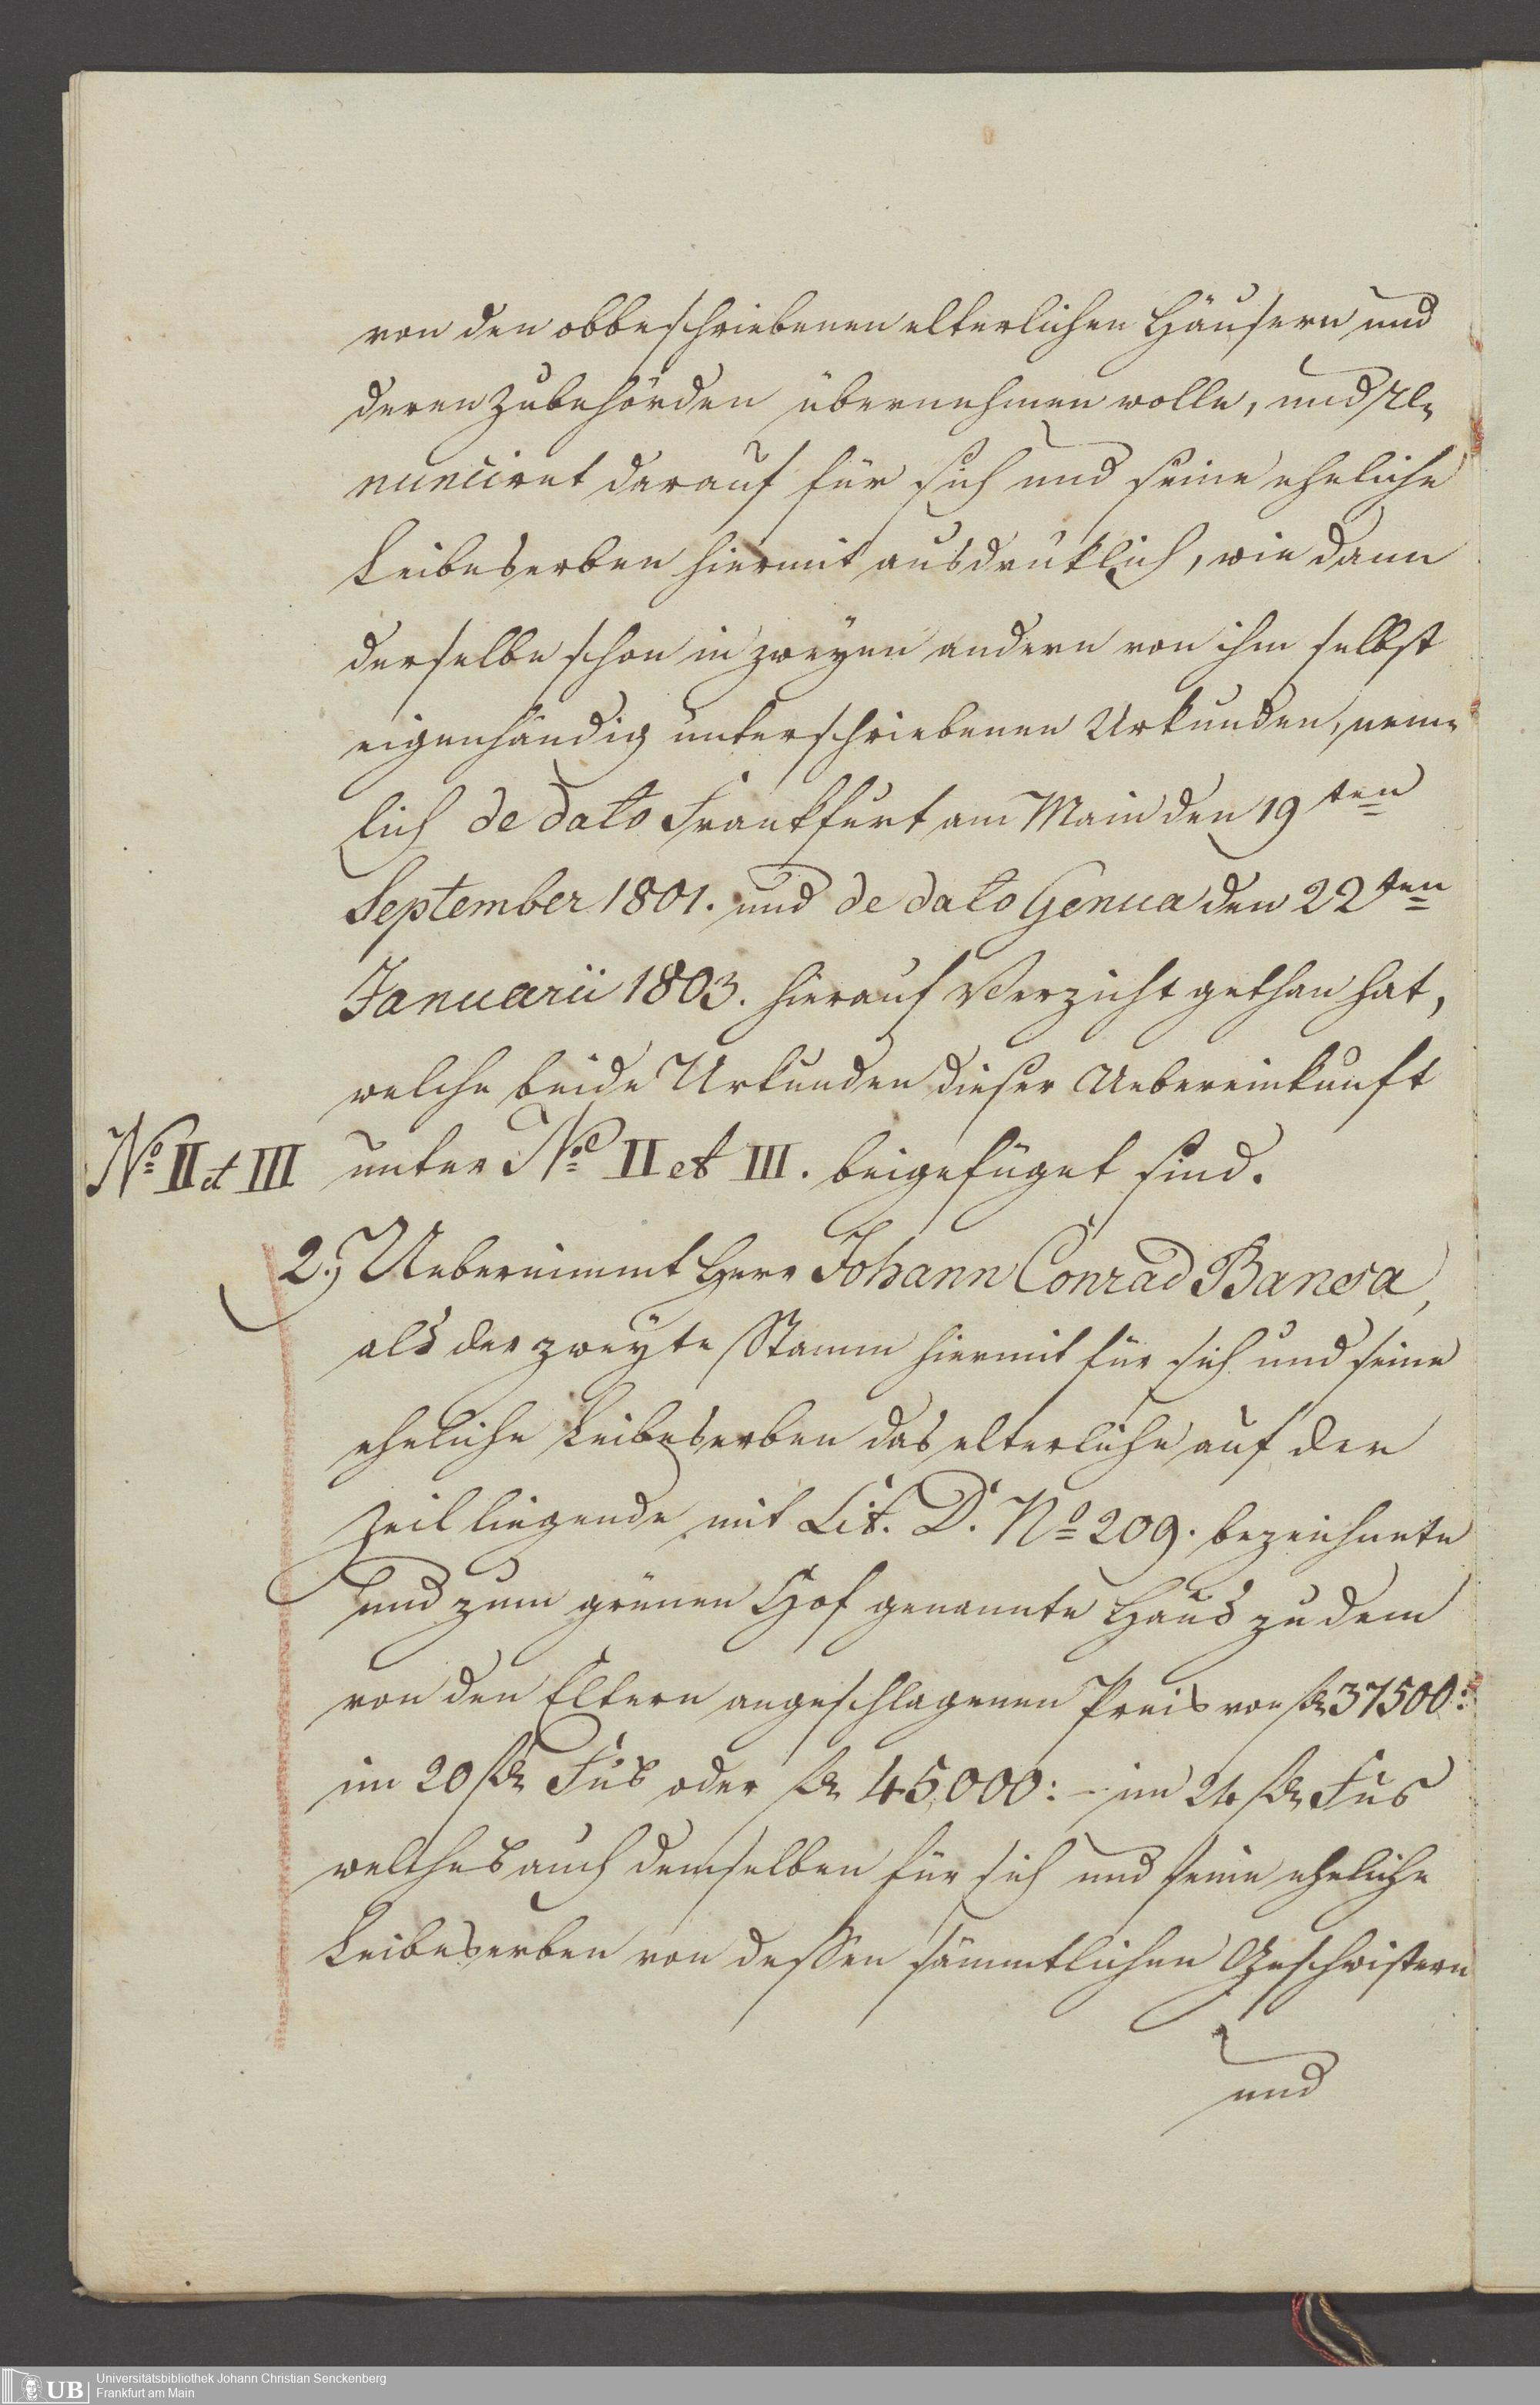 von den obbeschriebenen elterlichen Häusern und
deren Zubehörden übernehmen wolle, und re-
nunciret darauf für sich und seine eheliche
Leibeserben hiermit ausdrüklich, wie dann
derselbe schon in zweyen andern von ihm selbst
eigenhändig unterschriebenen Urkunden, nem-
lich de dato Frankfurt am Main den 19ten
September 1801. und de dato Genua den 22ten
Januarii 1803. hierauf Verzicht gethan hat,
welche beide Urkunden dieser Uebereinkunft
No II et III
unter No II et III. beigefüget sind.
2.) Uebernimmt Herr Johann Conrad Bansa,
als der zweyte Stamm hiermit für sich und seine
eheliche Leibeserben das elterliche auf der
Zeil liegende mit Lit. D. No 209. bezeichnete
und zum grünen Hof genannte Haus zu dem
von den Eltern angeschlagenen Preis von fl 37500:
im 20 fl Fus oder fl 45,000:- im 24 fl Fus
welches auch demselben für sich und seine eheliche
Leibeserben von dessen sämmtlichen Geschwistern
und
UB
Universitätsbibliothek Johann Christian Senckenberg
Frankfurt am Main